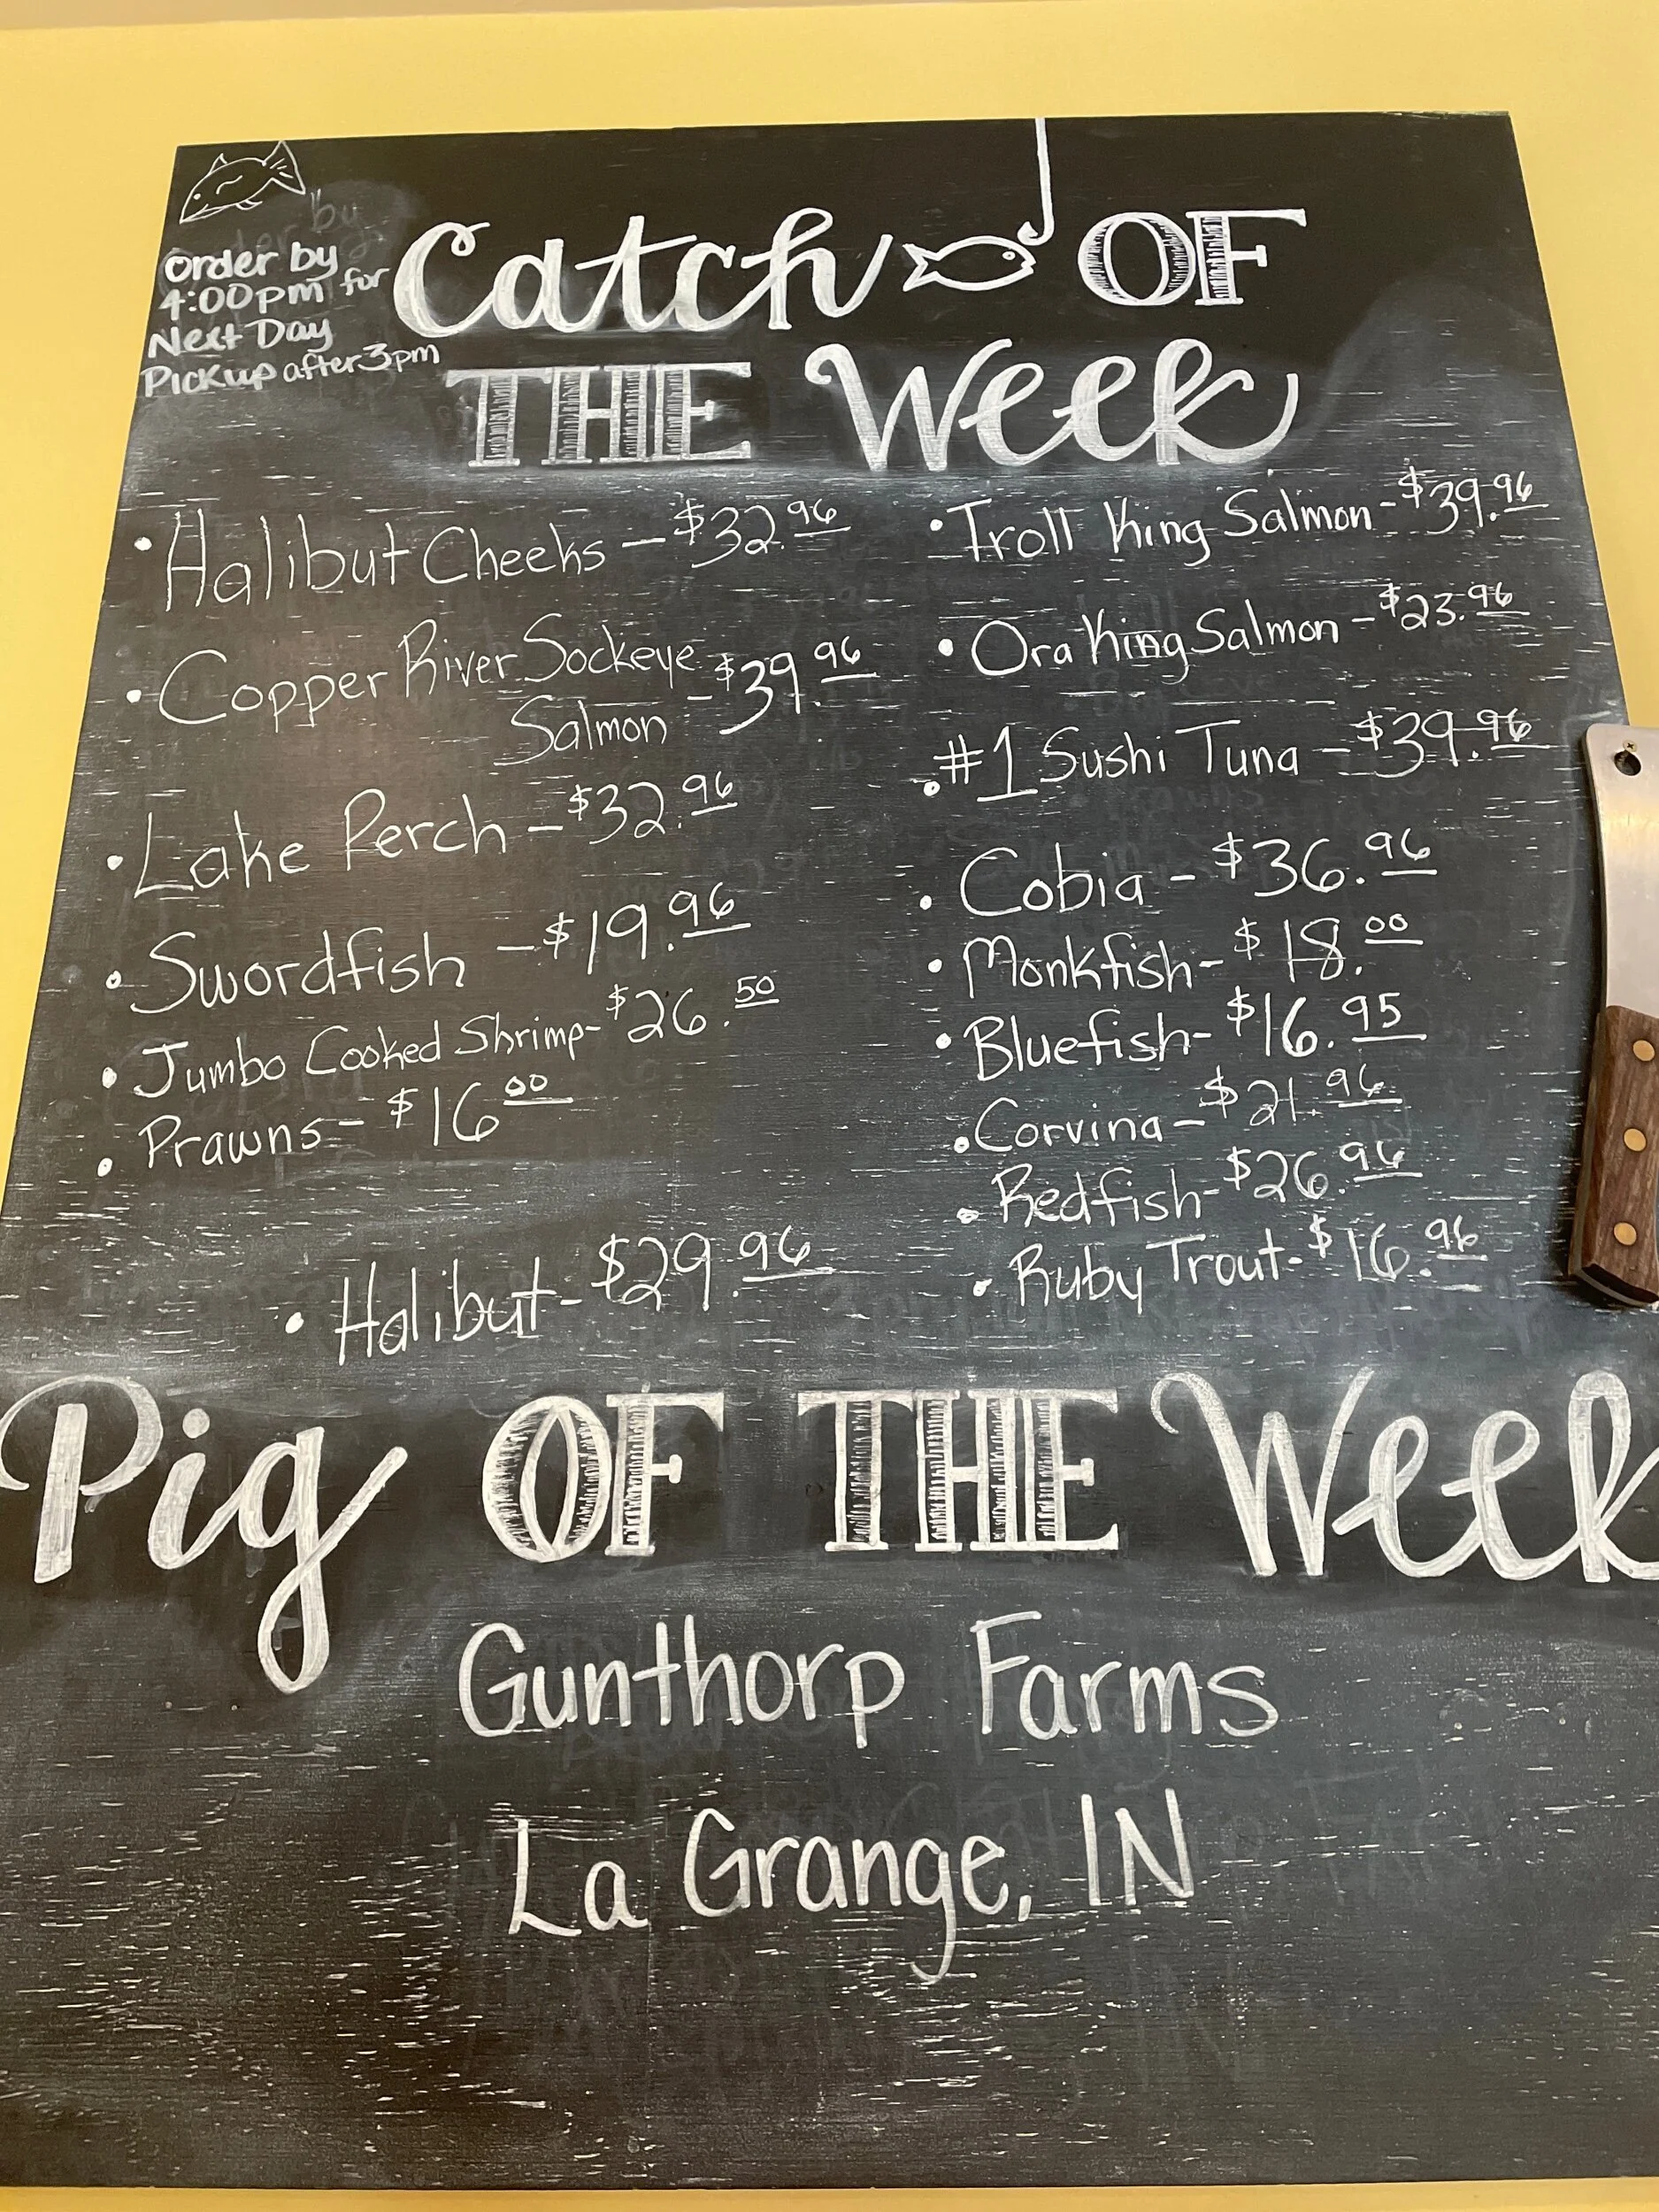 Order by
4:00pm for
Next Day
Pickup after 3pm
Catch OF
THE Week
• Halibut Cheeks - $32.96
• Copper River Sockeye
Salmon - $39.96
• Lake Perch - $32.96
• Swordfish - $19.96
• Jumbo Cooked Shrimp - $26.50
• Prawns - $16 00
• Halibut - $29.96
• Troll King Salmon - $39.96
• Ora King Salmon - $23.96
• #1 Sushi Tuna - $39.96
• Cobia - $36.96
• Monkfish - $18.00
• Bluefish - $16.95
• Corvina - $21.96
• Redfish - $26.96
• Ruby Trout - $16.96
Pig OF THE Week
Gunthorp Farms
La Grange, IN